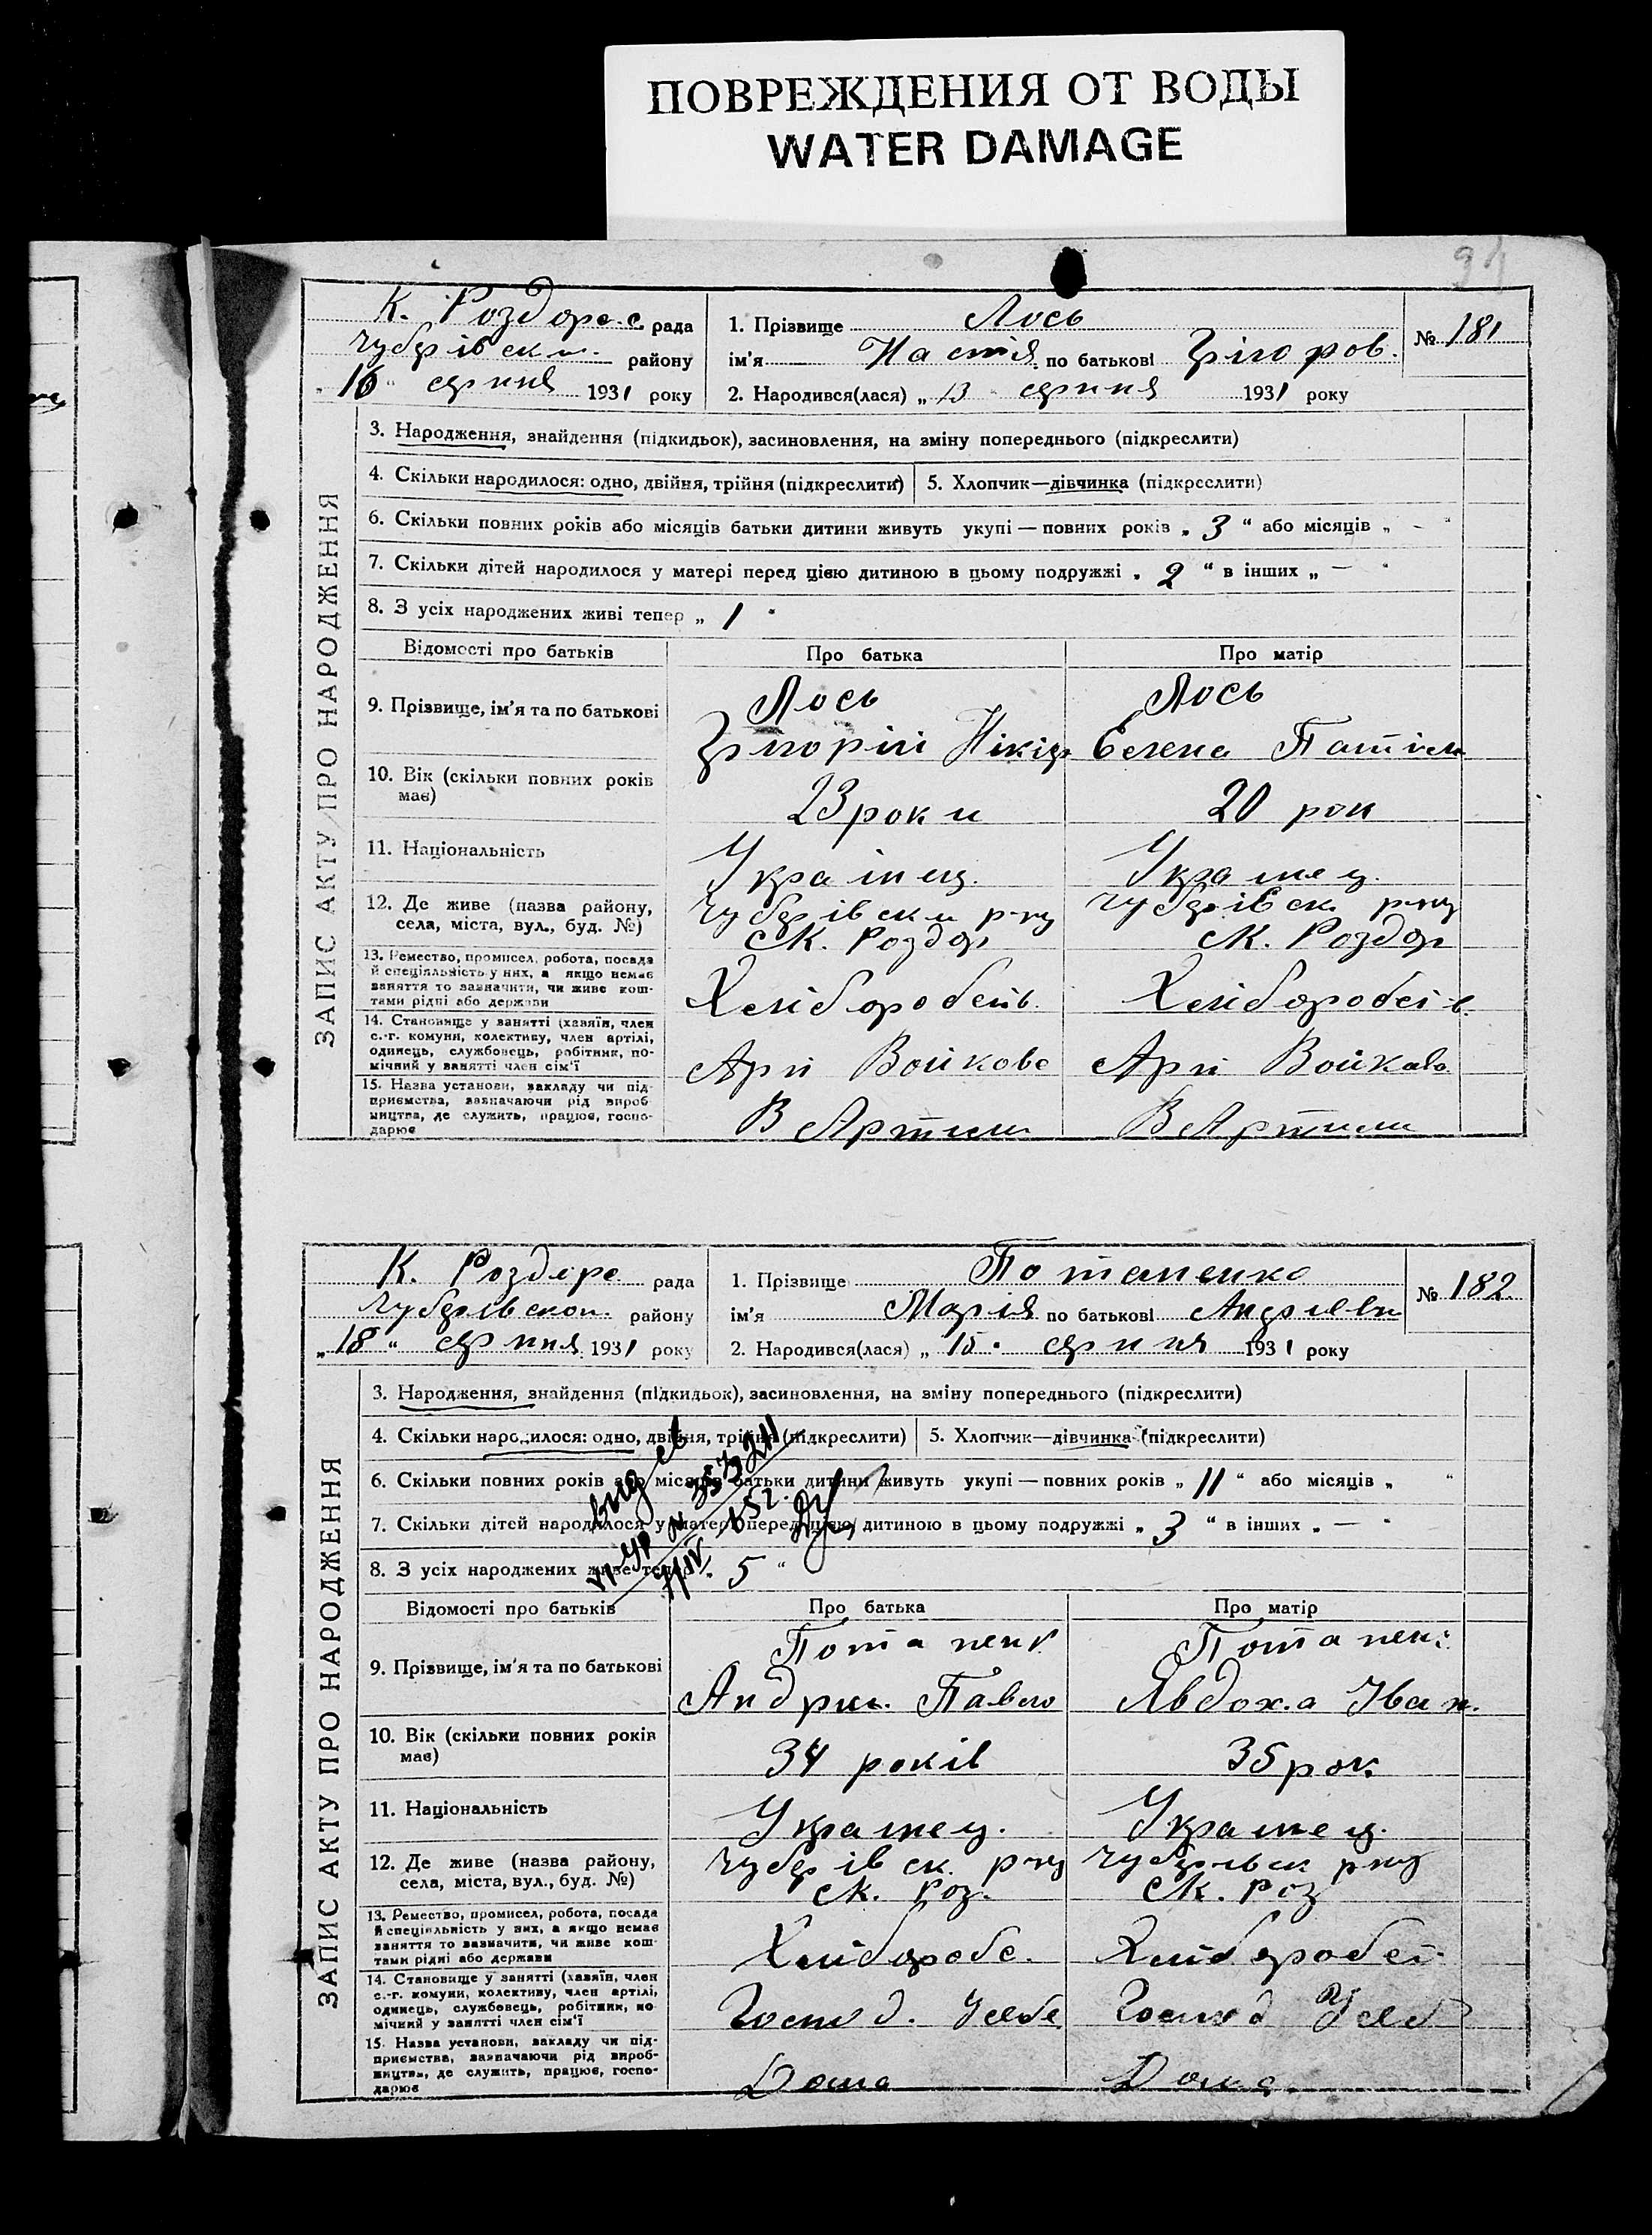 ПОВРЕЖДЕНИЯ ОТ ВОДЫ
WATER DAMAGE
91
К. Роздорс. рада
Чубарівськ. району
"16" серпня 1931 року
1. Прізвище Лось
ім'я Настія по батькові Грігоров.
№ 181
2. Народився(лася) „13 серпня 1931 року
ЗАПИС АКТУ ПРО НАРОДЖЕННЯ
3. Народження, знайдення (підкидьок), засиновлення, на зміну попереднього (підкреслити)
4. Скільки народилося: одно, двійня, трійня (підкреслити)
5. Хлопчик—дівчинка (підкреслити)
6. Скільки повних років або місяців батьки дитини живуть укупі — повних років „ 3 “ або місяців „ - “
7. Скільки дітей народилося у матері перед цією дитиною в цьому подружжі „ 2 “ в інших „ —
8. З усіх народжених живі тепер „ 1
Відомості про батьків Про батька Про матір
9. Прізвище, ім'я та по батькові
Лось
Грігорій Нікіф
Лось
Єлена
10. Вік (скільки повних років має)
23 роки
20 рок
11. Національність
Українец.
Украинец.
12. Де живе (назва району, села, міста, вул., буд. №)
Чубарівськи р-ну
с К. Роздор
Чубарівск. р-ну
с К. Роздор
13. Ремество, промисел, робота, посада
й спеціяльність у них, а якщо немає
заняття то зазначити, чи живе кош-
тами рідні або держави
Хліборобств.
Хліборобст в.
14. Становище у занятті (хазяїн, член
с.-г. комуни, колективу, член артілі,
одинець, службовець, робітник, по-
мічний у занятті член сім'ї
Арт Войкова
Арт Войкова
15. Назва установи, закладу чи під-
приємства, зазначаючи рід вироб-
ництва, де служить, працює, госпо-
дарює
В Артили
В Артили
К. Роздоре рада
Чубарівськ. району
„18“ серпня 1931 року
1. Прізвище Потапенко
ім'я Марія по батькові Андріевн
№ 182
2. Народився(лася) „ 15. серпня 1931 року
ЗАПИС АКТУ ПРО НАРОДЖЕННЯ
3. Народження, знайдення (підкидьок), засиновлення, на зміну попереднього (підкреслити)
4. Скільки народилося: одно, двійня, трійня (підкреслити)
5. Хлопчик—дівчинка (підкреслити)
6. Скільки повних років або місяців батьки дитини живуть укупі — повних років „ 11 “ або місяців „ “
7. Скільки дітей народилося у матері перед цією дитиною в цьому подружжі „ 3 “ в інших „ —
8. З усіх народжених живе тепер „ 5 “
Відомості про батьків Про батька Про матір
9. Прізвище, ім'я та по батькові
Потапенк
Андрій. Павло
Потапен
Явдоха Іван.
10. Вік (скільки повних років має)
34 років
35 рок.
11. Національність
Украинец.
Украинец.
12. Де живе (назва району, села, міста, вул., буд. №)
Чубарівск. р-ну
с К. Роз.
Чубарівск р-ну
с К. Роз
13. Ремество, промисел, робота, посада
й спеціяльність у них, а якщо немає
заняття то зазначити, чи живе кош-
тами рідні або держави
Хліборобс.
Хліборобст
14. Становище у занятті (хазяїн, член
с.-г. комуни, колективу, член артілі,
одинець, службовець, робітник, по-
мічний у занятті член сім'ї
Господ. Усебе
Господ Усеб
15. Назва установи, закладу чи під-
приємства, зазначаючи рід вироб-
ництва, де служить, працює, госпо-
дарює
Дома
Дома